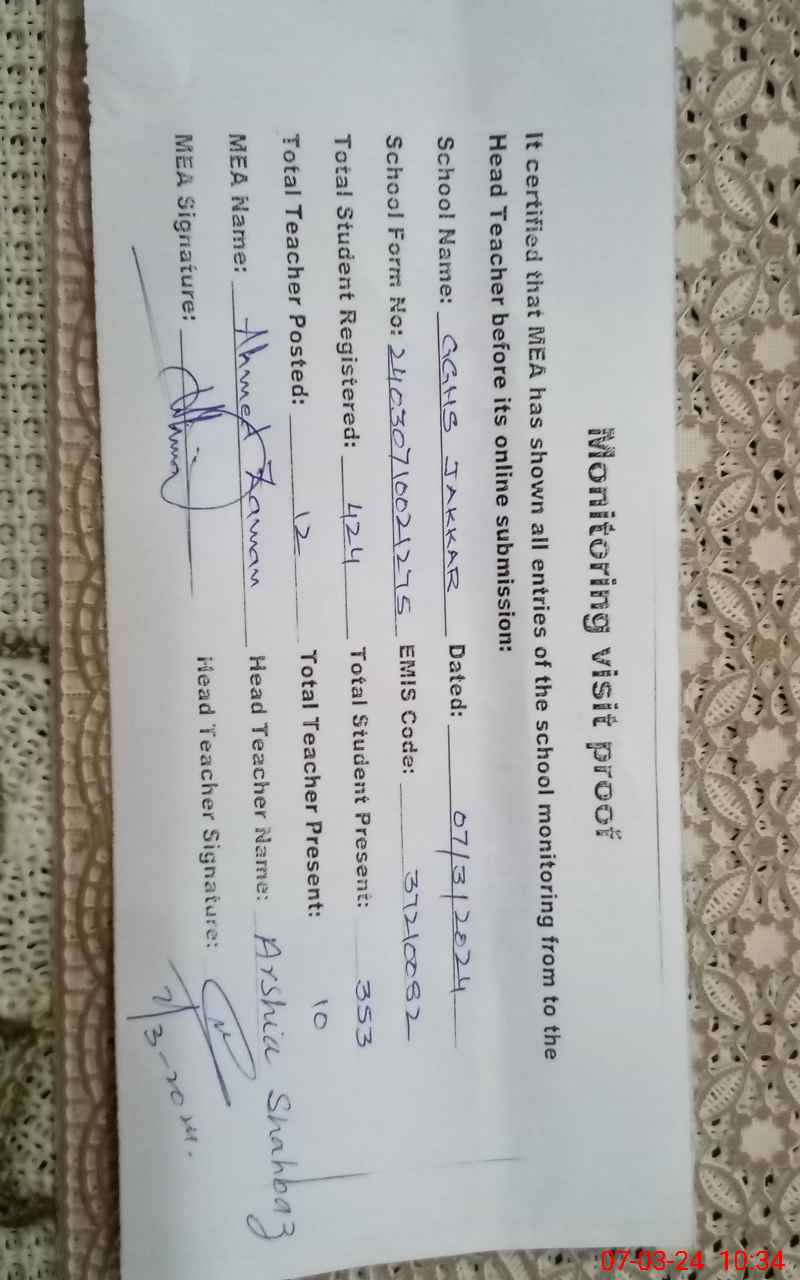 Monitoring visit proof
It certified that MEA has shown all entries of the school monitoring from to the
Head Teacher before its online submission:
School Name: GGHS JAKKAR Dated: 07/3/2024
School Form No: 24030710021275 EMIS Code: 37210082
Total Student Registered: 424 Total Student Present: 353
Total Teacher Posted: 12 Total Teacher Present: 10
MEA Name: Ahmed Zaman Head Teacher Name: Arshia Shahbaz
MEA Signature: Head Teacher Signature:
07-03-24 10:34